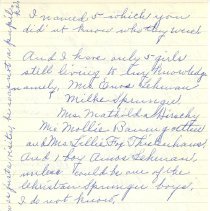 I named 5 which you
did not know who they were
And I have only 5 girls
still living to my knowledge
namely, Mrs Enos Lehman
Milke Sprunger
Mrs. Mathilda Hirschy
Mrs Mollie Baumgartner
and Mrs Tillie Thieshaus.
And 1 boy Amos Lehman,
unless could be one of the
Christian Sprunger boys,
I do not know.